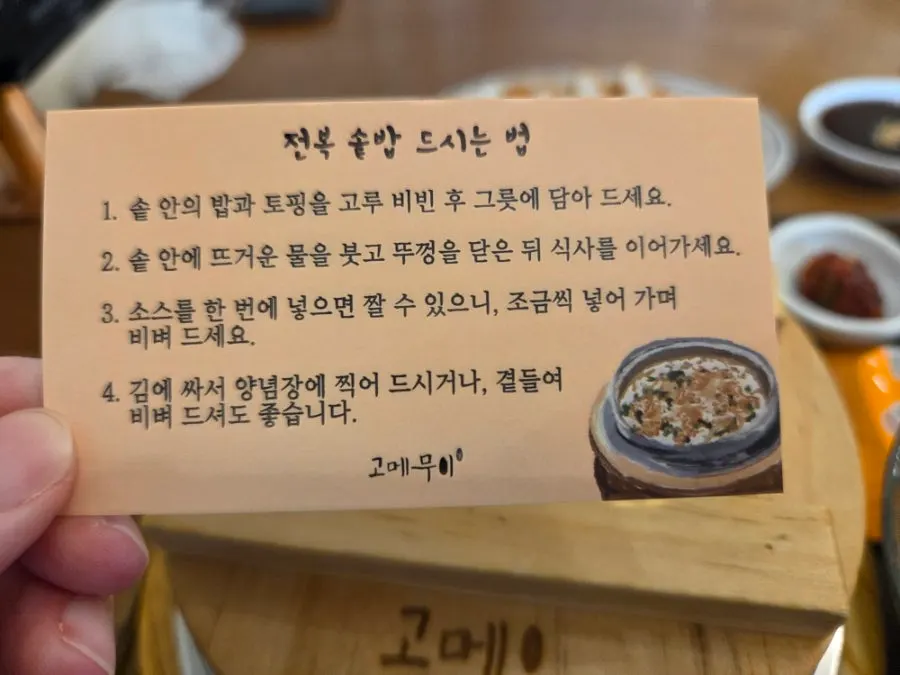 전복 솥밥 드시는 법
1. 솥 안의 밥과 토핑을 고루 비빈 후 그릇에 담아 드세요.
2. 솥 안에 뜨거운 물을 붓고 뚜껑을 닫은 뒤 식사를 이어가세요.
3. 소스를 한 번에 넣으면 짤 수 있으니, 조금씩 넣어 가며
비벼 드세요.
4. 김에 싸서 양념장에 찍어 드시거나, 곁들여
비벼 드셔도 좋습니다.
고메무이
고메